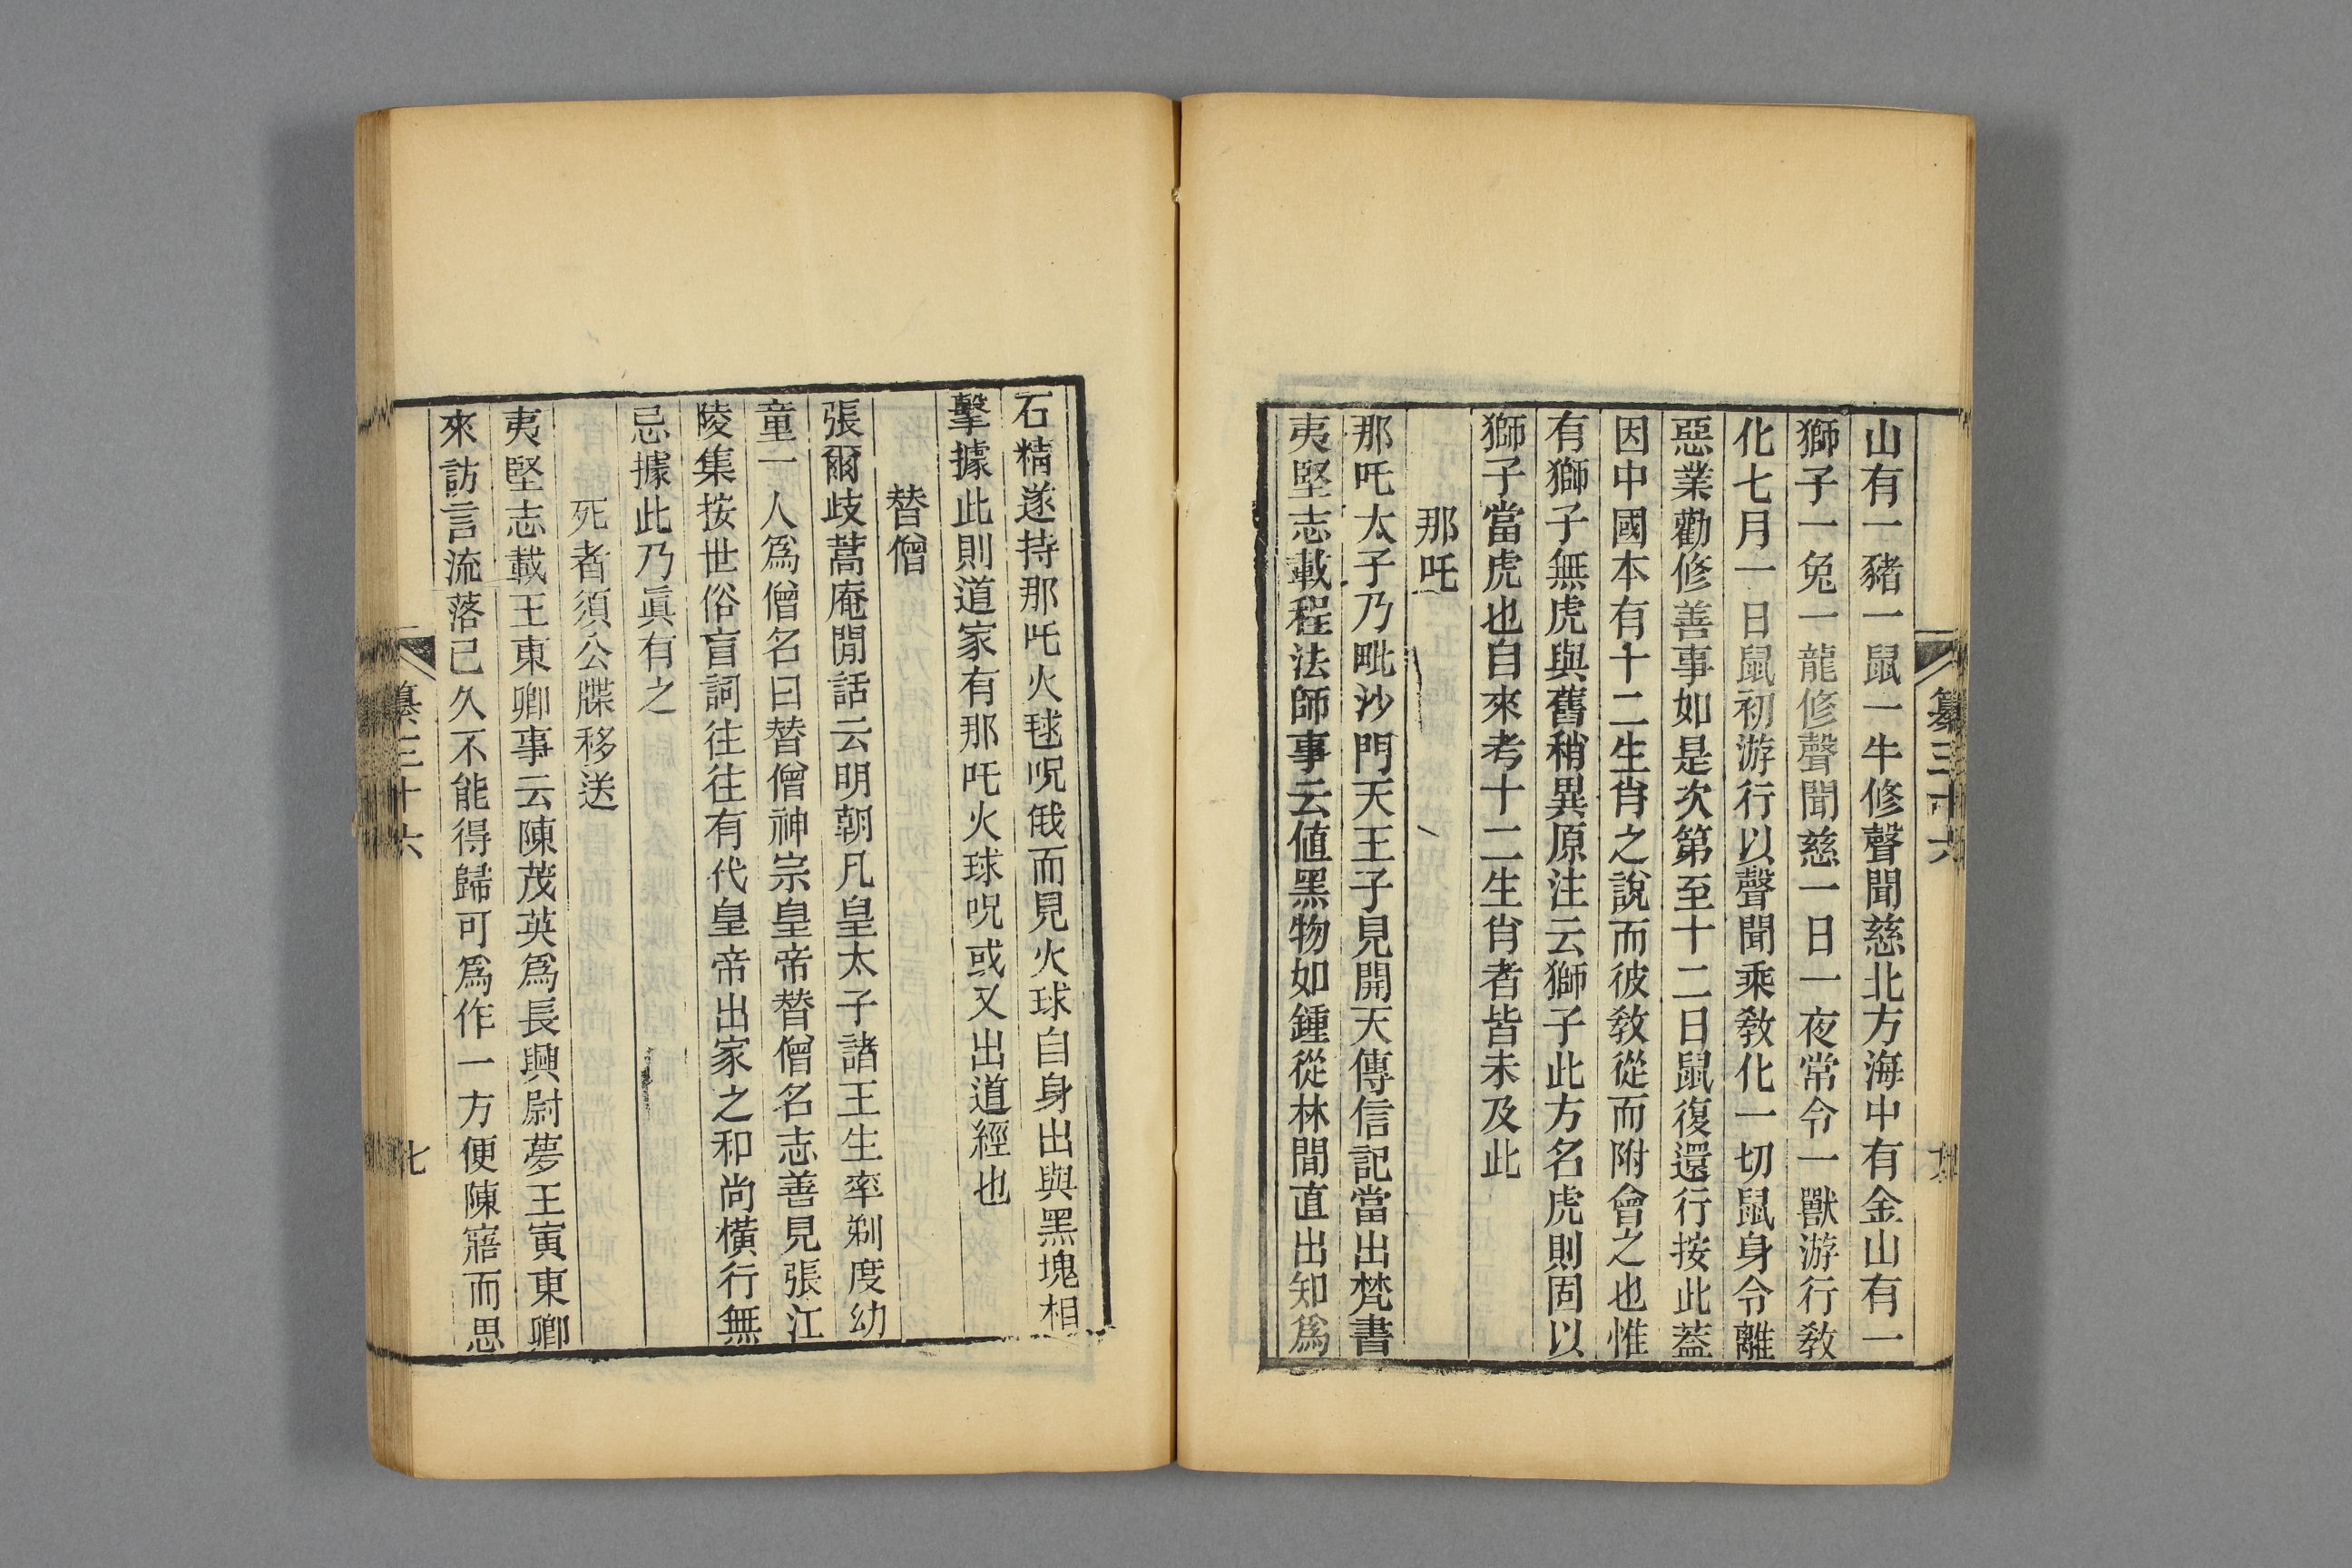 纂三十六
山有一豬一鼠一牛修聲聞慈北方海中有金山有一
獅子一兔一龍修聲聞慈一日一夜常令一獸游行教
化七月一日鼠初游行以聲聞乘教化一切鼠身令離
惡業勸修善事如是次第至十二日鼠復還行按此蓋
因中國本有十二生肖之說而彼教從而附會之也惟
有獅子無虎與舊稍異原注云獅子此方名虎則固以
獅子當虎也自來考十二生肖者皆未及此
那吒
那吒太子乃毗沙門天王子見開天傳信記當出梵書
夷堅志載程法師事云值黑物如鍾從林間直出知爲
石精遂持那吒火毬呪俄而見火球自身出與黑塊相
擊據此則道家有那吒火球呪或又出道經也
替僧
張爾歧蒿庵閒話云明朝凡皇太子諸王生率剃度幼
童一人爲僧名曰替僧神宗皇帝替僧名志善見張江
陵集按世俗盲詞往往有代皇帝出家之和尚橫行無
忌據此乃眞有之
死者須公牒移送
夷堅志載王東卿事云陳茂英爲長興尉夢王寅東卿
來訪言流落已久不能得歸可爲作一方便陳寤而思
纂三十六
七